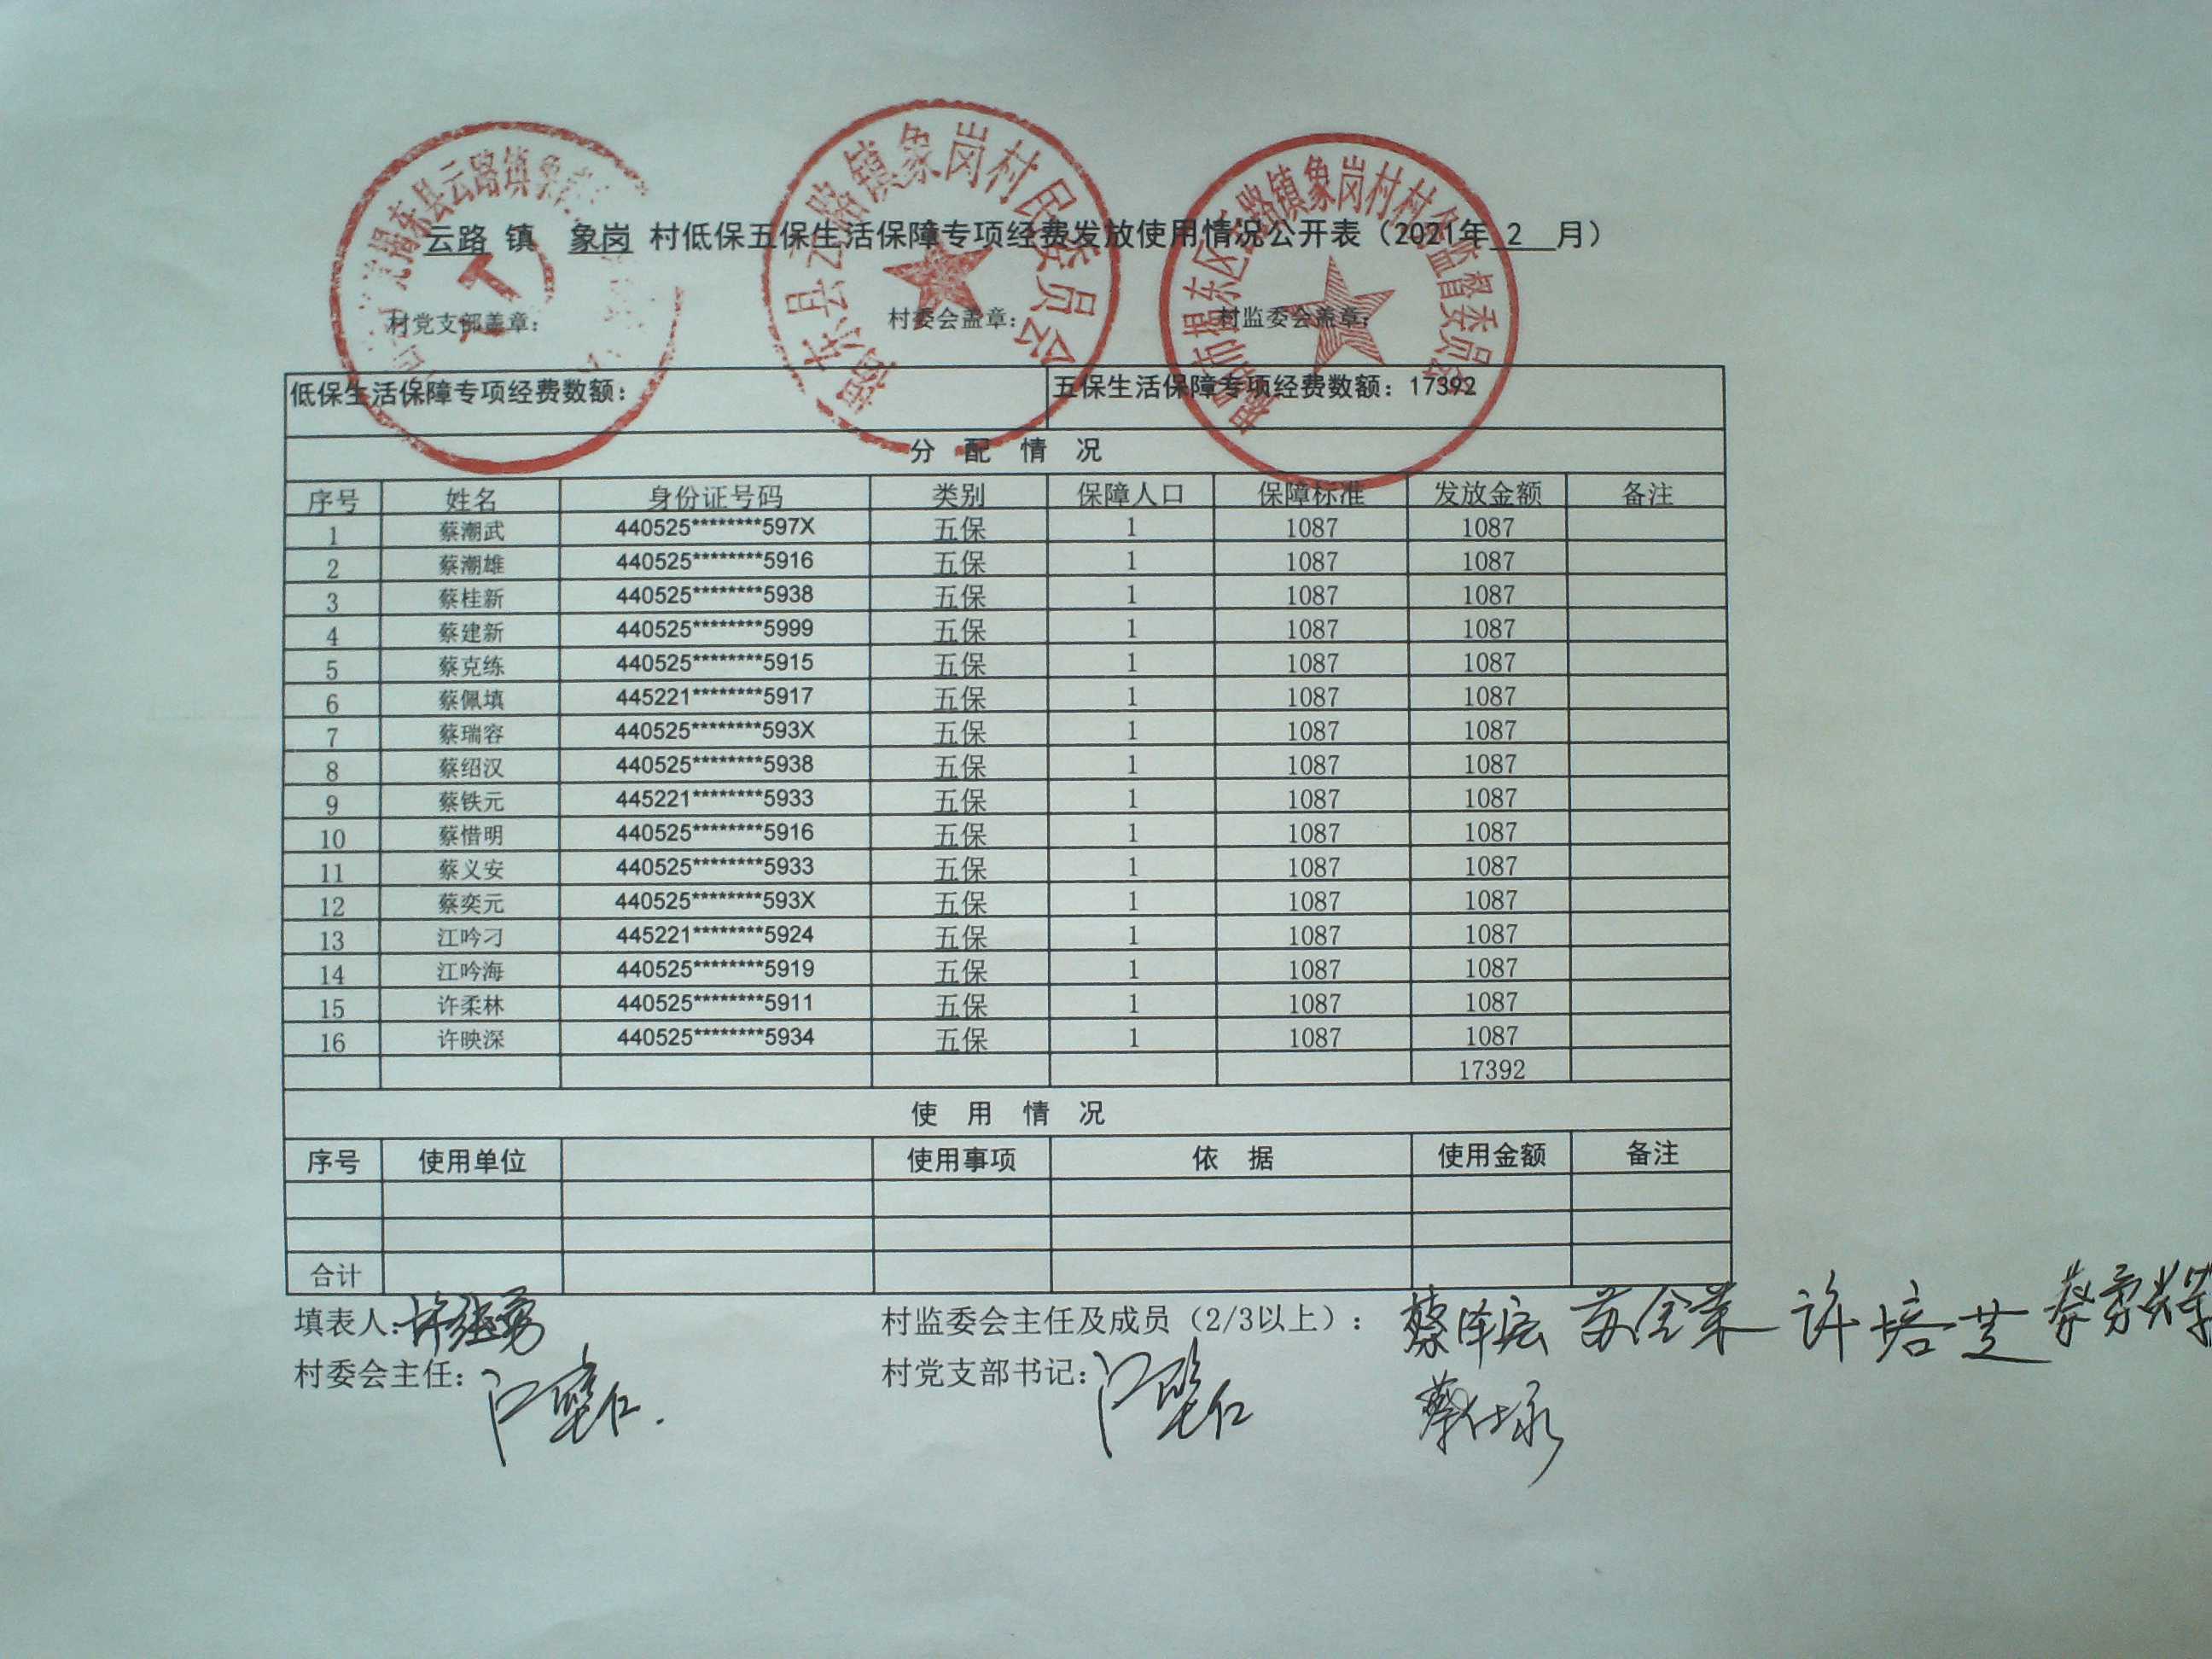 云路 镇 象岗 村低保五保生活保障专项经费发放使用情况公开表（2021年 2 月）
村党支部盖章： 村委会盖章： 村监委会盖章：
揭东县云路镇象岗村民委员会
揭阳市揭东区云路镇象岗村村务监督委员会
低保生活保障专项经费数额： 五保生活保障专项经费数额：17392
分 配 情 况
序号 姓名 身份证号码 类别 保障人口 保障标准 发放金额 备注
1 蔡潮武 440525********597X 五保 1 1087 1087
2 蔡潮雄 440525********5916 五保 1 1087 1087
3 蔡桂新 440525********5938 五保 1 1087 1087
4 蔡建新 440525********5999 五保 1 1087 1087
5 蔡克练 440525********5915 五保 1 1087 1087
6 蔡佩填 445221********5917 五保 1 1087 1087
7 蔡瑞容 440525********593X 五保 1 1087 1087
8 蔡绍汉 440525********5938 五保 1 1087 1087
9 蔡铁元 445221********5933 五保 1 1087 1087
10 蔡惜明 440525********5916 五保 1 1087 1087
11 蔡义安 440525********5933 五保 1 1087 1087
12 蔡奕元 440525********593X 五保 1 1087 1087
13 江吟刁 445221********5924 五保 1 1087 1087
14 江吟海 440525********5919 五保 1 1087 1087
15 许柔林 440525********5911 五保 1 1087 1087
16 许映深 440525********5934 五保 1 1087 1087
17392
使 用 情 况
序号 使用单位 使用事项 依 据 使用金额 备注
合计
填表人： 村监委会主任及成员（2/3以上）： 蔡泽宏 许培芝
村委会主任： 村党支部书记： 蔡仕永